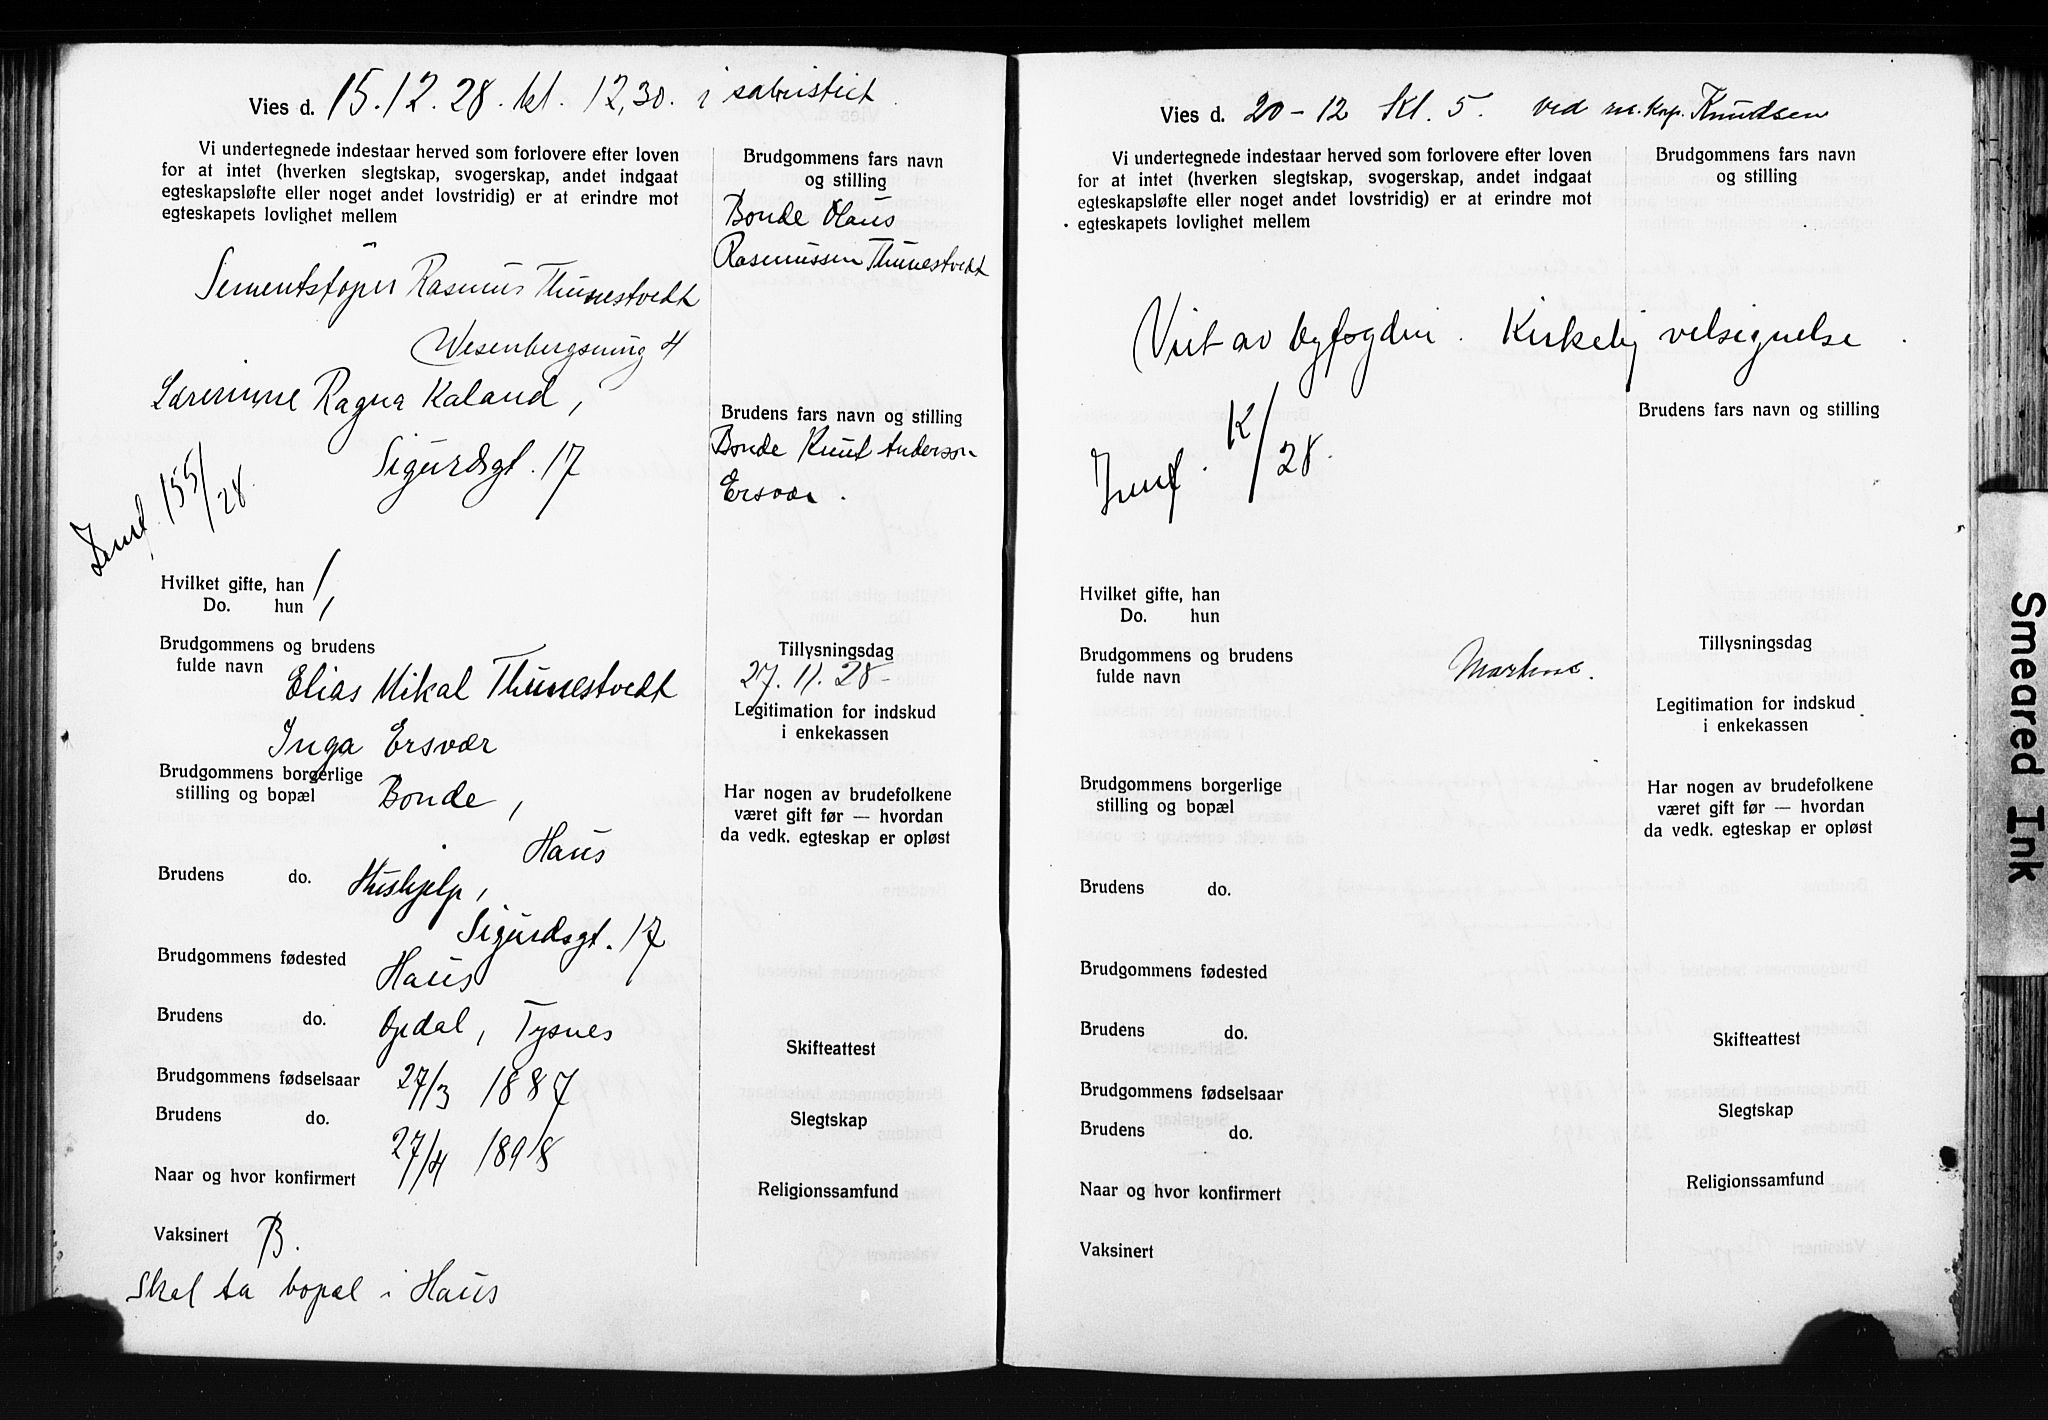 Vies d. 15.12.28. kl. 12,30. i sakristiet.
Vi undertegnede indestaar herved som forlovere efter loven
for at intet (hverken slegtskap, svogerskap, andet indgaat
egteskapsløfte eller noget andet lovstridig) er at erindre mot
egteskapets lovlighet mellem
Sementstøper Rasmus Thunestvedt
Wesenbergsmug 4
Lærerinne Ragna Kaland,
Sigurdsgt. 17
Jvnf. 155/28.
Hvilket gifte, han 1,
Do. hun 1
Brudgommens og brudens
fulde navn
Elias Mikal Thunestvedt
Inga Ersvær
Brudgommens borgerlige
stilling og bopæl
Bonde,
Haus
Brudens do. Hushjelp,
Sigurdsgt. 17
Brudgommens fødested Haus
Brudens do. Opdal, Tysnes
Brudgommens fødselsaar 27/3 1887
Brudens do. 27/4 1898
Naar og hvor konfirmert
Vaksinert B.
Skal ta bopæl i Haus
Brudgommens fars navn
og stilling
Bonde Olaus
Rasmussen Thunestvedt
Brudens fars navn og stilling
Bonde Knut Anderson
Ersvær.
Tillysningsdag
27.11.28-
Legitimation for indskud
i enkekassen
Har nogen av brudefolkene
været gift før — hvordan
da vedk. egteskap er opløst
Skifteattest
Slegtskap
Religionssamfund
Vies d. 20-12 Kl. 5. ved res. kap. Knudsen
Vi undertegnede indestaar herved som forlovere efter loven
for at intet (hverken slegtskap, svogerskap, andet indgaat
egteskapsløfte eller noget andet lovstridig) er at erindre mot
egteskapets lovlighet mellem
Viet av byfogden. Kirkelig velsignelse.
Jvnf. K/28.
Hvilket gifte, han
Do. hun
Brudgommens og brudens
fulde navn
Martens.
Brudgommens borgerlige
stilling og bopæl
Brudens do.
Brudgommens fødested
Brudens do.
Brudgommens fødselsaar
Brudens do.
Naar og hvor konfirmert
Vaksinert
Brudgommens fars navn
og stilling
Brudens fars navn og stilling
Tillysningsdag
Legitimation for indskud
i enkekassen
Har nogen av brudefolkene
været gift før — hvordan
da vedk. egteskap er opløst
Skifteattest
Slegtskap
Religionssamfund
Smeared Ink